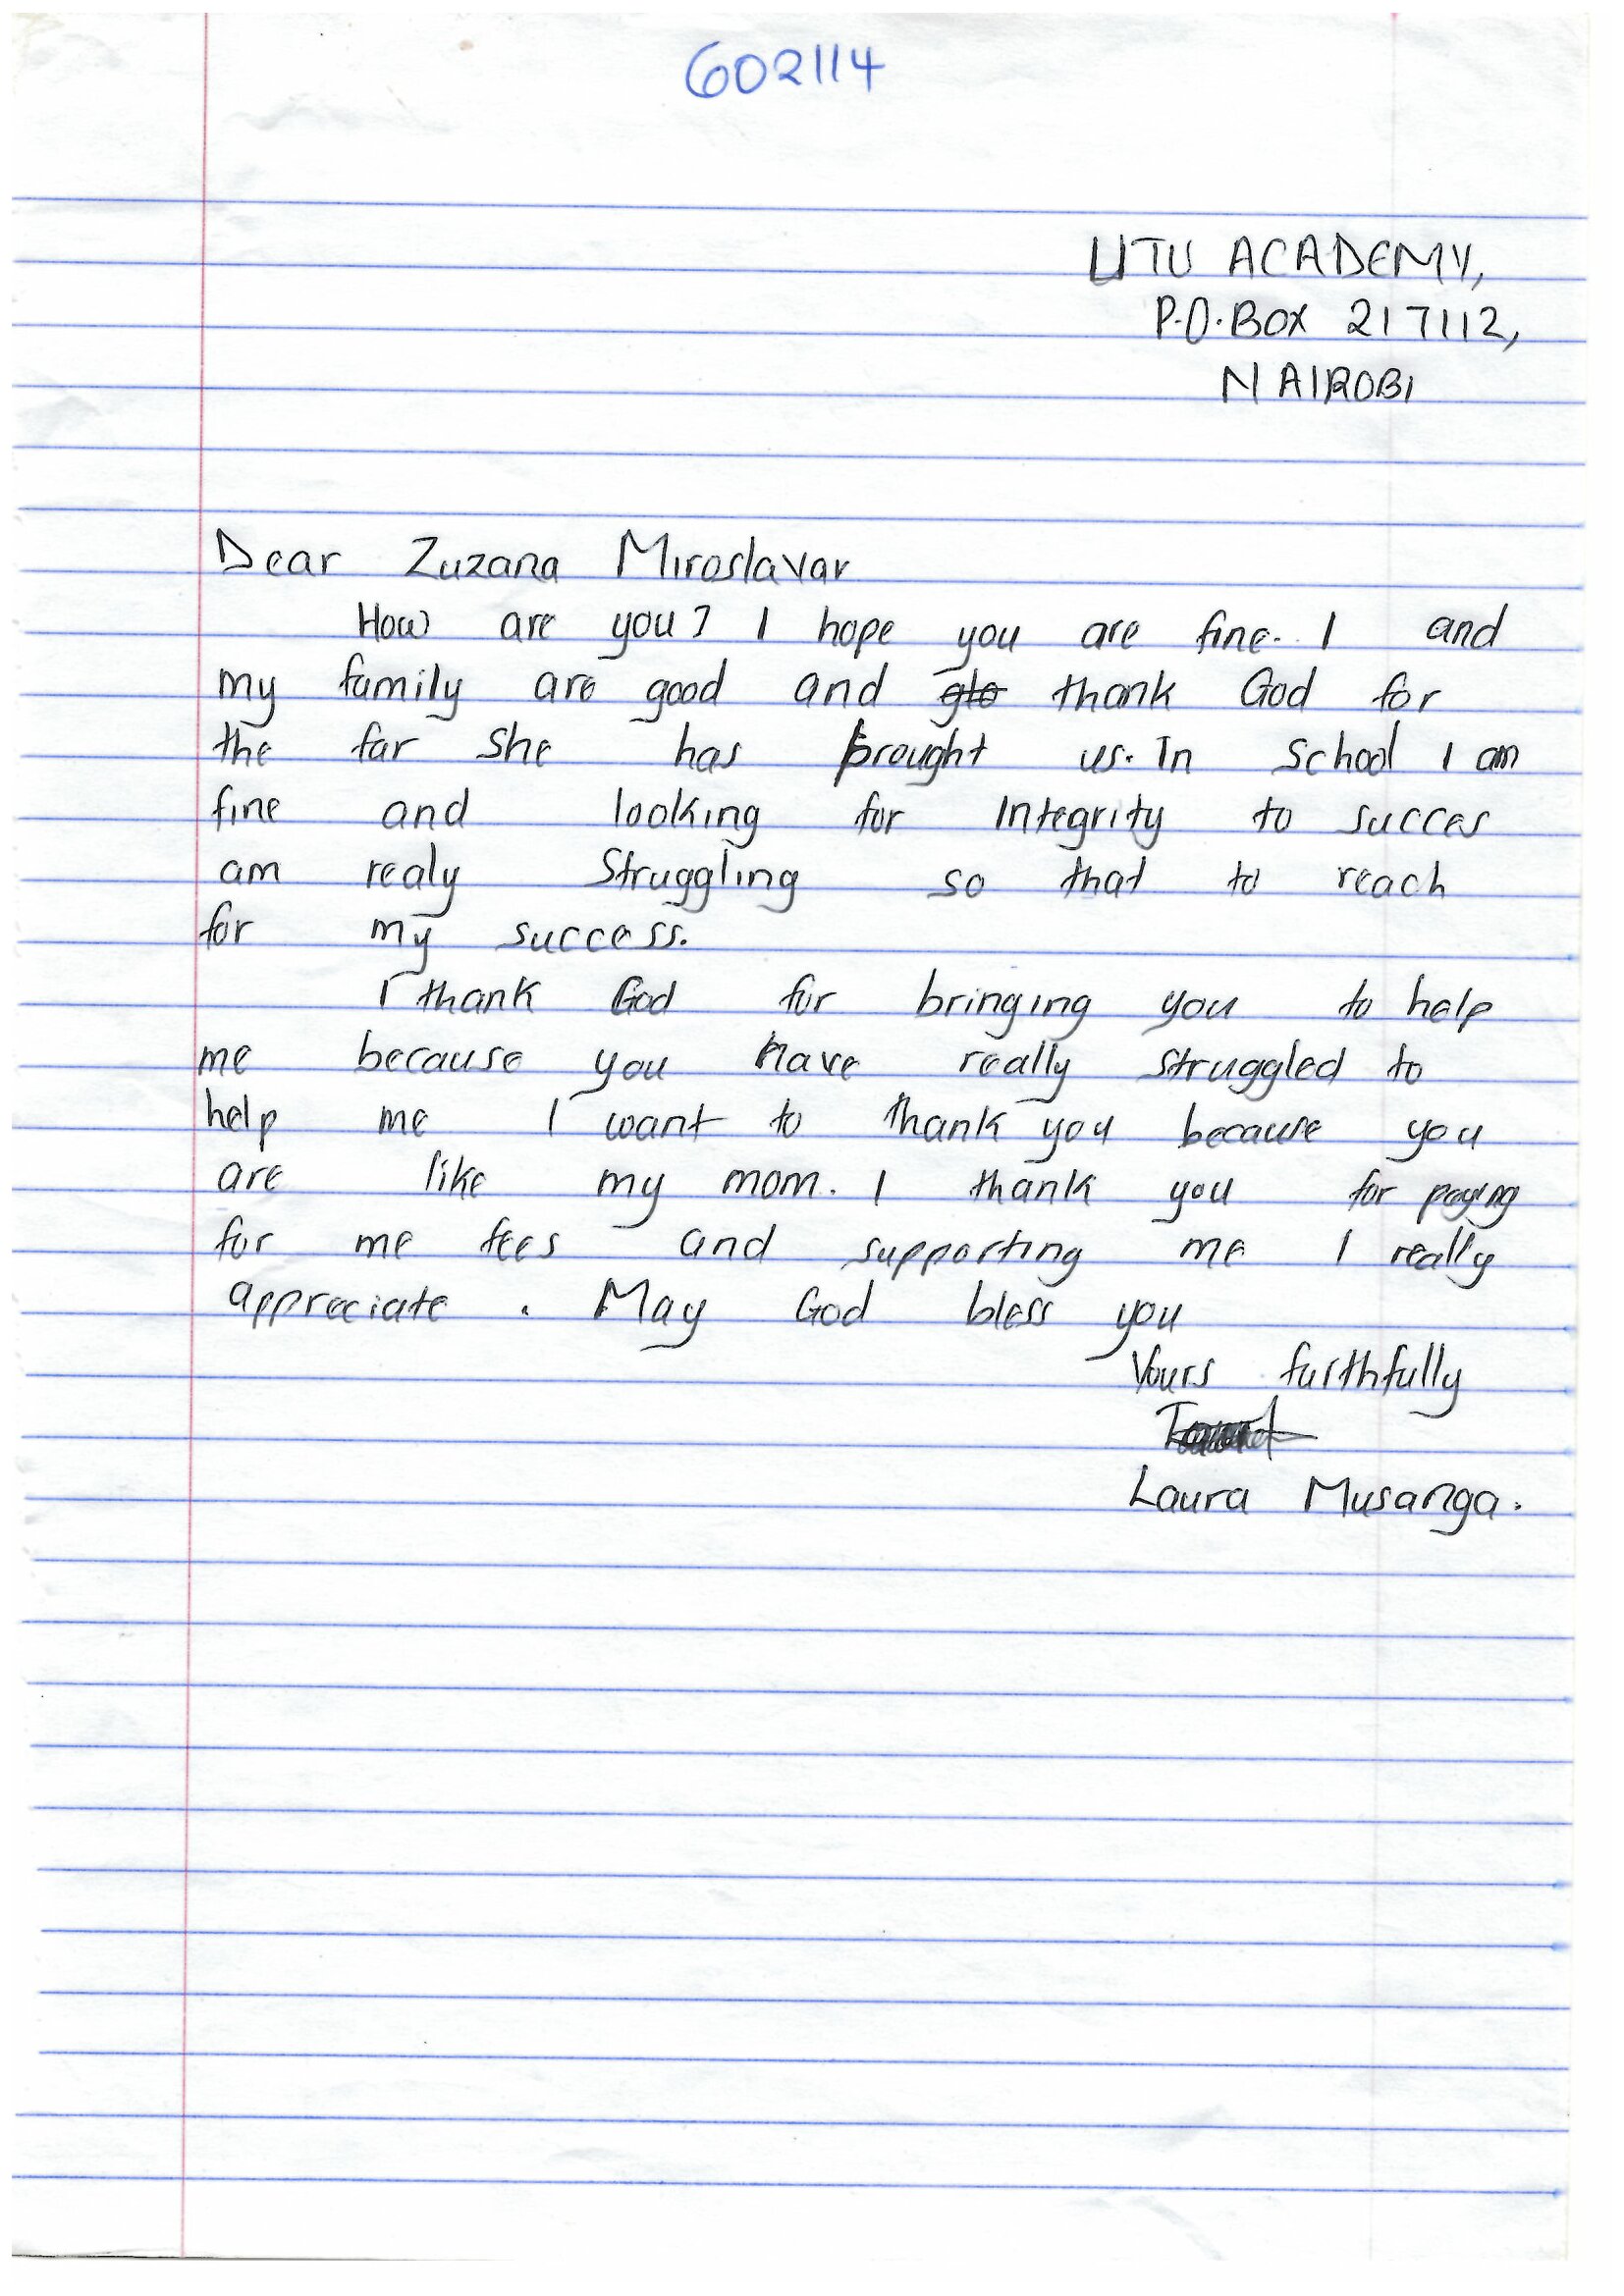 602114
UTU ACADEMY,
P.O.BOX 217112,
NAIROBI
Dear Zuzana Miroslavar
How are you? I hope you are fine. I and
my family are good and glo thank God for
the far she has brought us. In school I am
fine and looking for Integrity to succes
am realy Struggling so that to reach
for my success.
I thank God for bringing you to help
me because you have really struggled to
help me I want to thank you because you
are like my mom. I thank you for paying
for me fees and supporting me I really
appreciate. May God bless you
Yours faithfully
Laura Musanga.